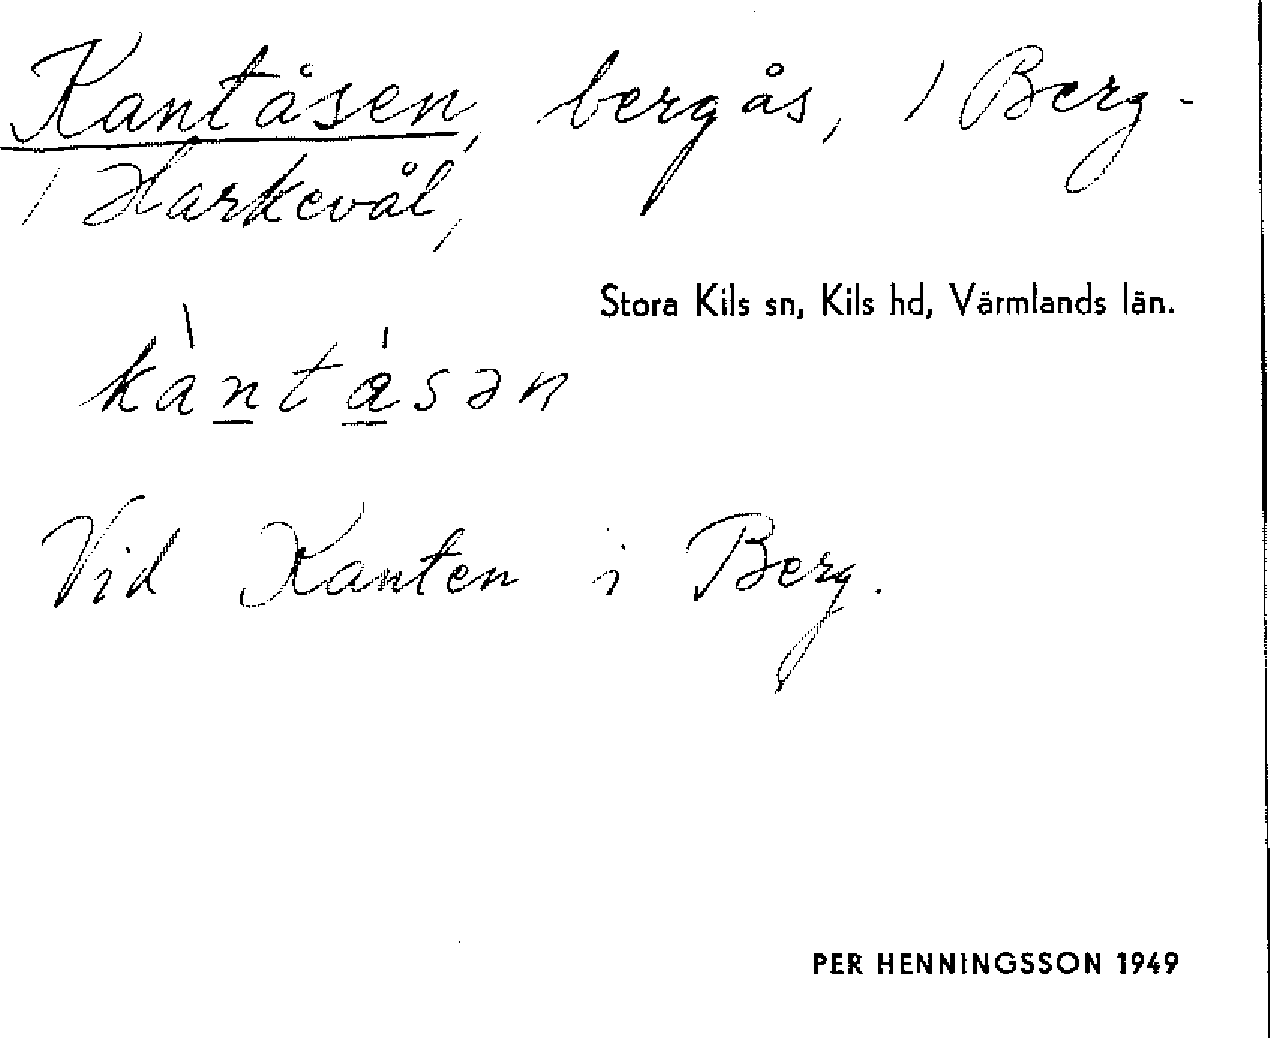 Kantåsen, bergås, / Berg-
/ Harkevål,
Stora Kils sn, Kils hd, Värmlands län.
kàntásən
Vid Kanten i Berg.
PER HENNINGSSON 1949